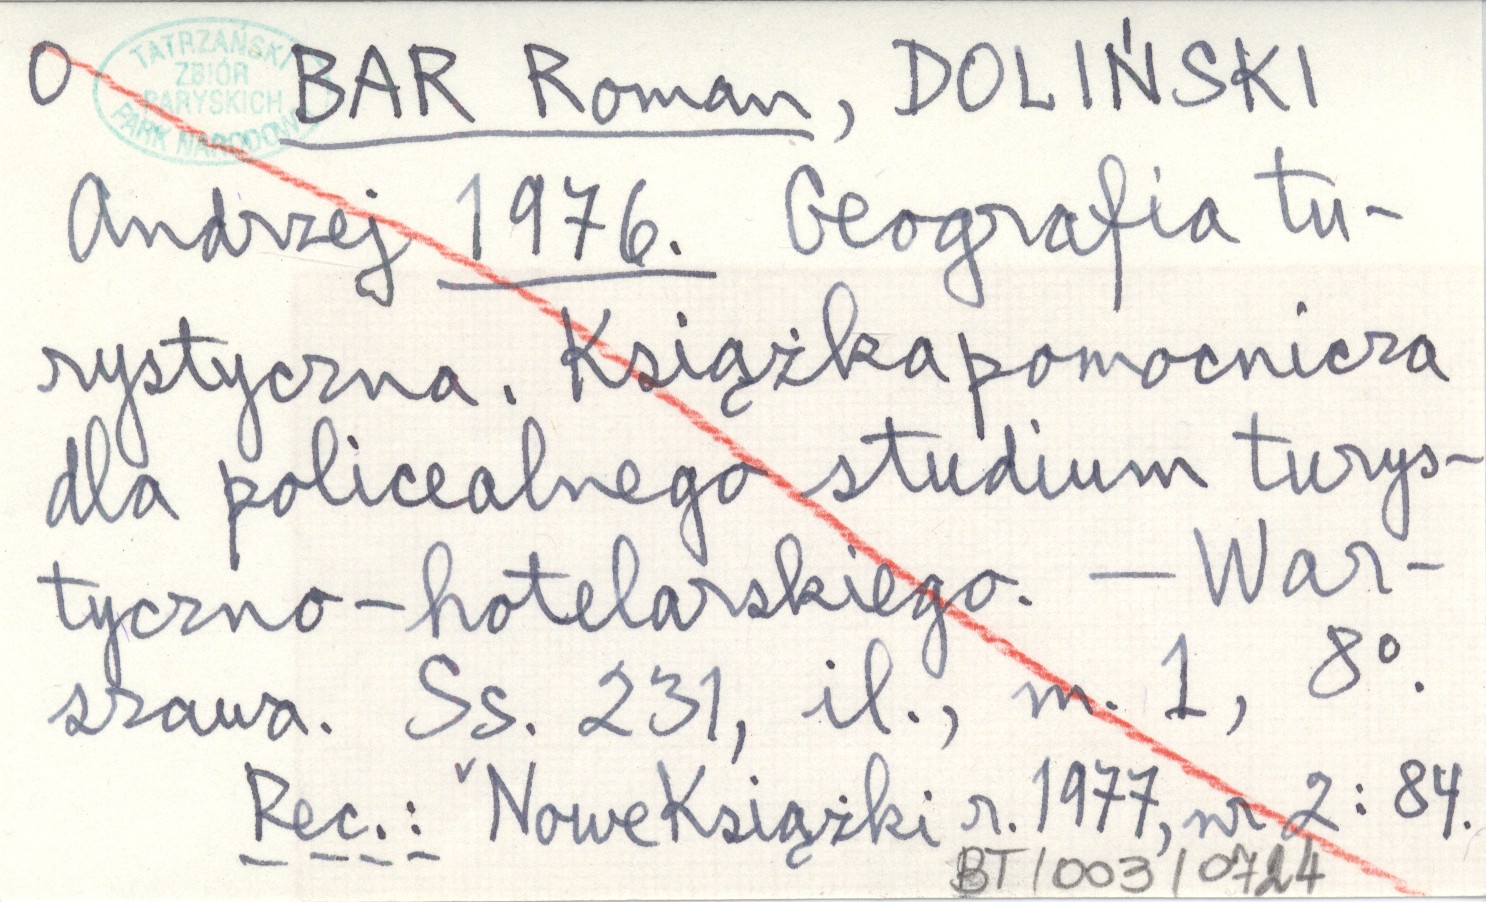 O
TATRZAŃSKI
ZBIÓR
PARYSKICH
PARK NARODOWY
BAR Roman, DOLIŃSKI
Andrzej 1976. Geografia tu-
rystyczna. Książka pomocnicza
dla policealnego studium turys-
tyczno-hotelarskiego. — War-
szawa. Ss. 231, il., m. 1, 8°.
Rec.: Nowe Książki r. 1977, nr 2: 84.
BT/003/0724